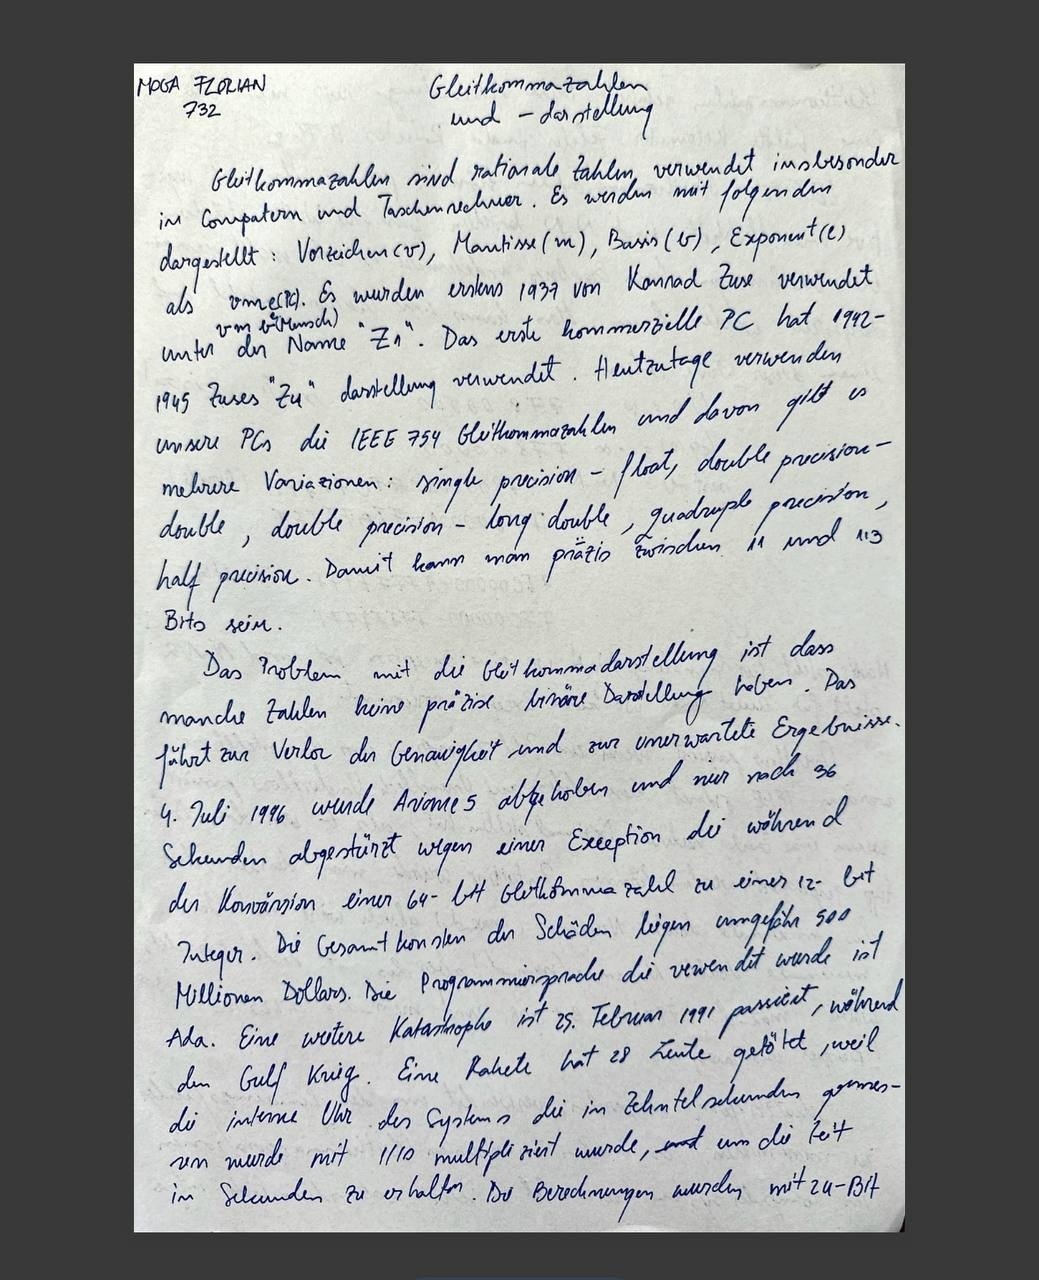 MOGA FLORIAN
732
Gleitkommazahlen
und - darstellung
Gleitkommazahlen sind rationale Zahlen, verwendet insbesonder
in Computern und Taschenrechner. Es werden mit folgenden
dargestellt: Vorzeichen(v), Mantisse(m), Basis(b), Exponent(e)
als vme(PC). Es wurden erstens 1937 von Konrad Zuse verwendet
vm b^e(Mensch)
unter der Name "Z1". Das erste kommerzielle PC hat 1942-
1945 Zuses "Z4" darstellung verwendet. Heutzutage verwenden
unsere PCs die IEEE 754 Gleitkommazahlen und davon gibt es
mehrere Variazionen: single precision - float, double precision-
double, double precision - long double, quadruple precision,
half precision. Damit kann man präzis zwischen 11 und 113
Bits sein.
Das Problem mit die Gleitkommadarstellung ist dass
manche Zahlen keine präzise binäre Darstellung haben. Das
führt zur Verlor der Genauigkeit und zur unerwartete Ergebnisse.
4. Juli 1996 wurde Ariane 5 abgehoben und nur nach 36
Sekunden abgestürzt wegen einer Exception die während
der Konvärsion einer 64-bit Gleitkommazahl zu einer 12-bit
Integer. Die Gesamtkonsten der Schäden liegen umgefähr 500
Millionen Dollars. Die Programmiersprache die vewendet wurde ist
Ada. Eine weitere Katastrophe ist 25. Februar 1991 passiert, während
den Gulf Krieg. Eine Rakete hat 28 Leute getötet, weil
die interne Uhr des Systems die in Zehntelsekunden gemes-
sen wurde mit 1/10 multipliziert wurde, um die Zeit
in Sekunden zu erhalten. Die Berechnungen wurden mit 24-Bit